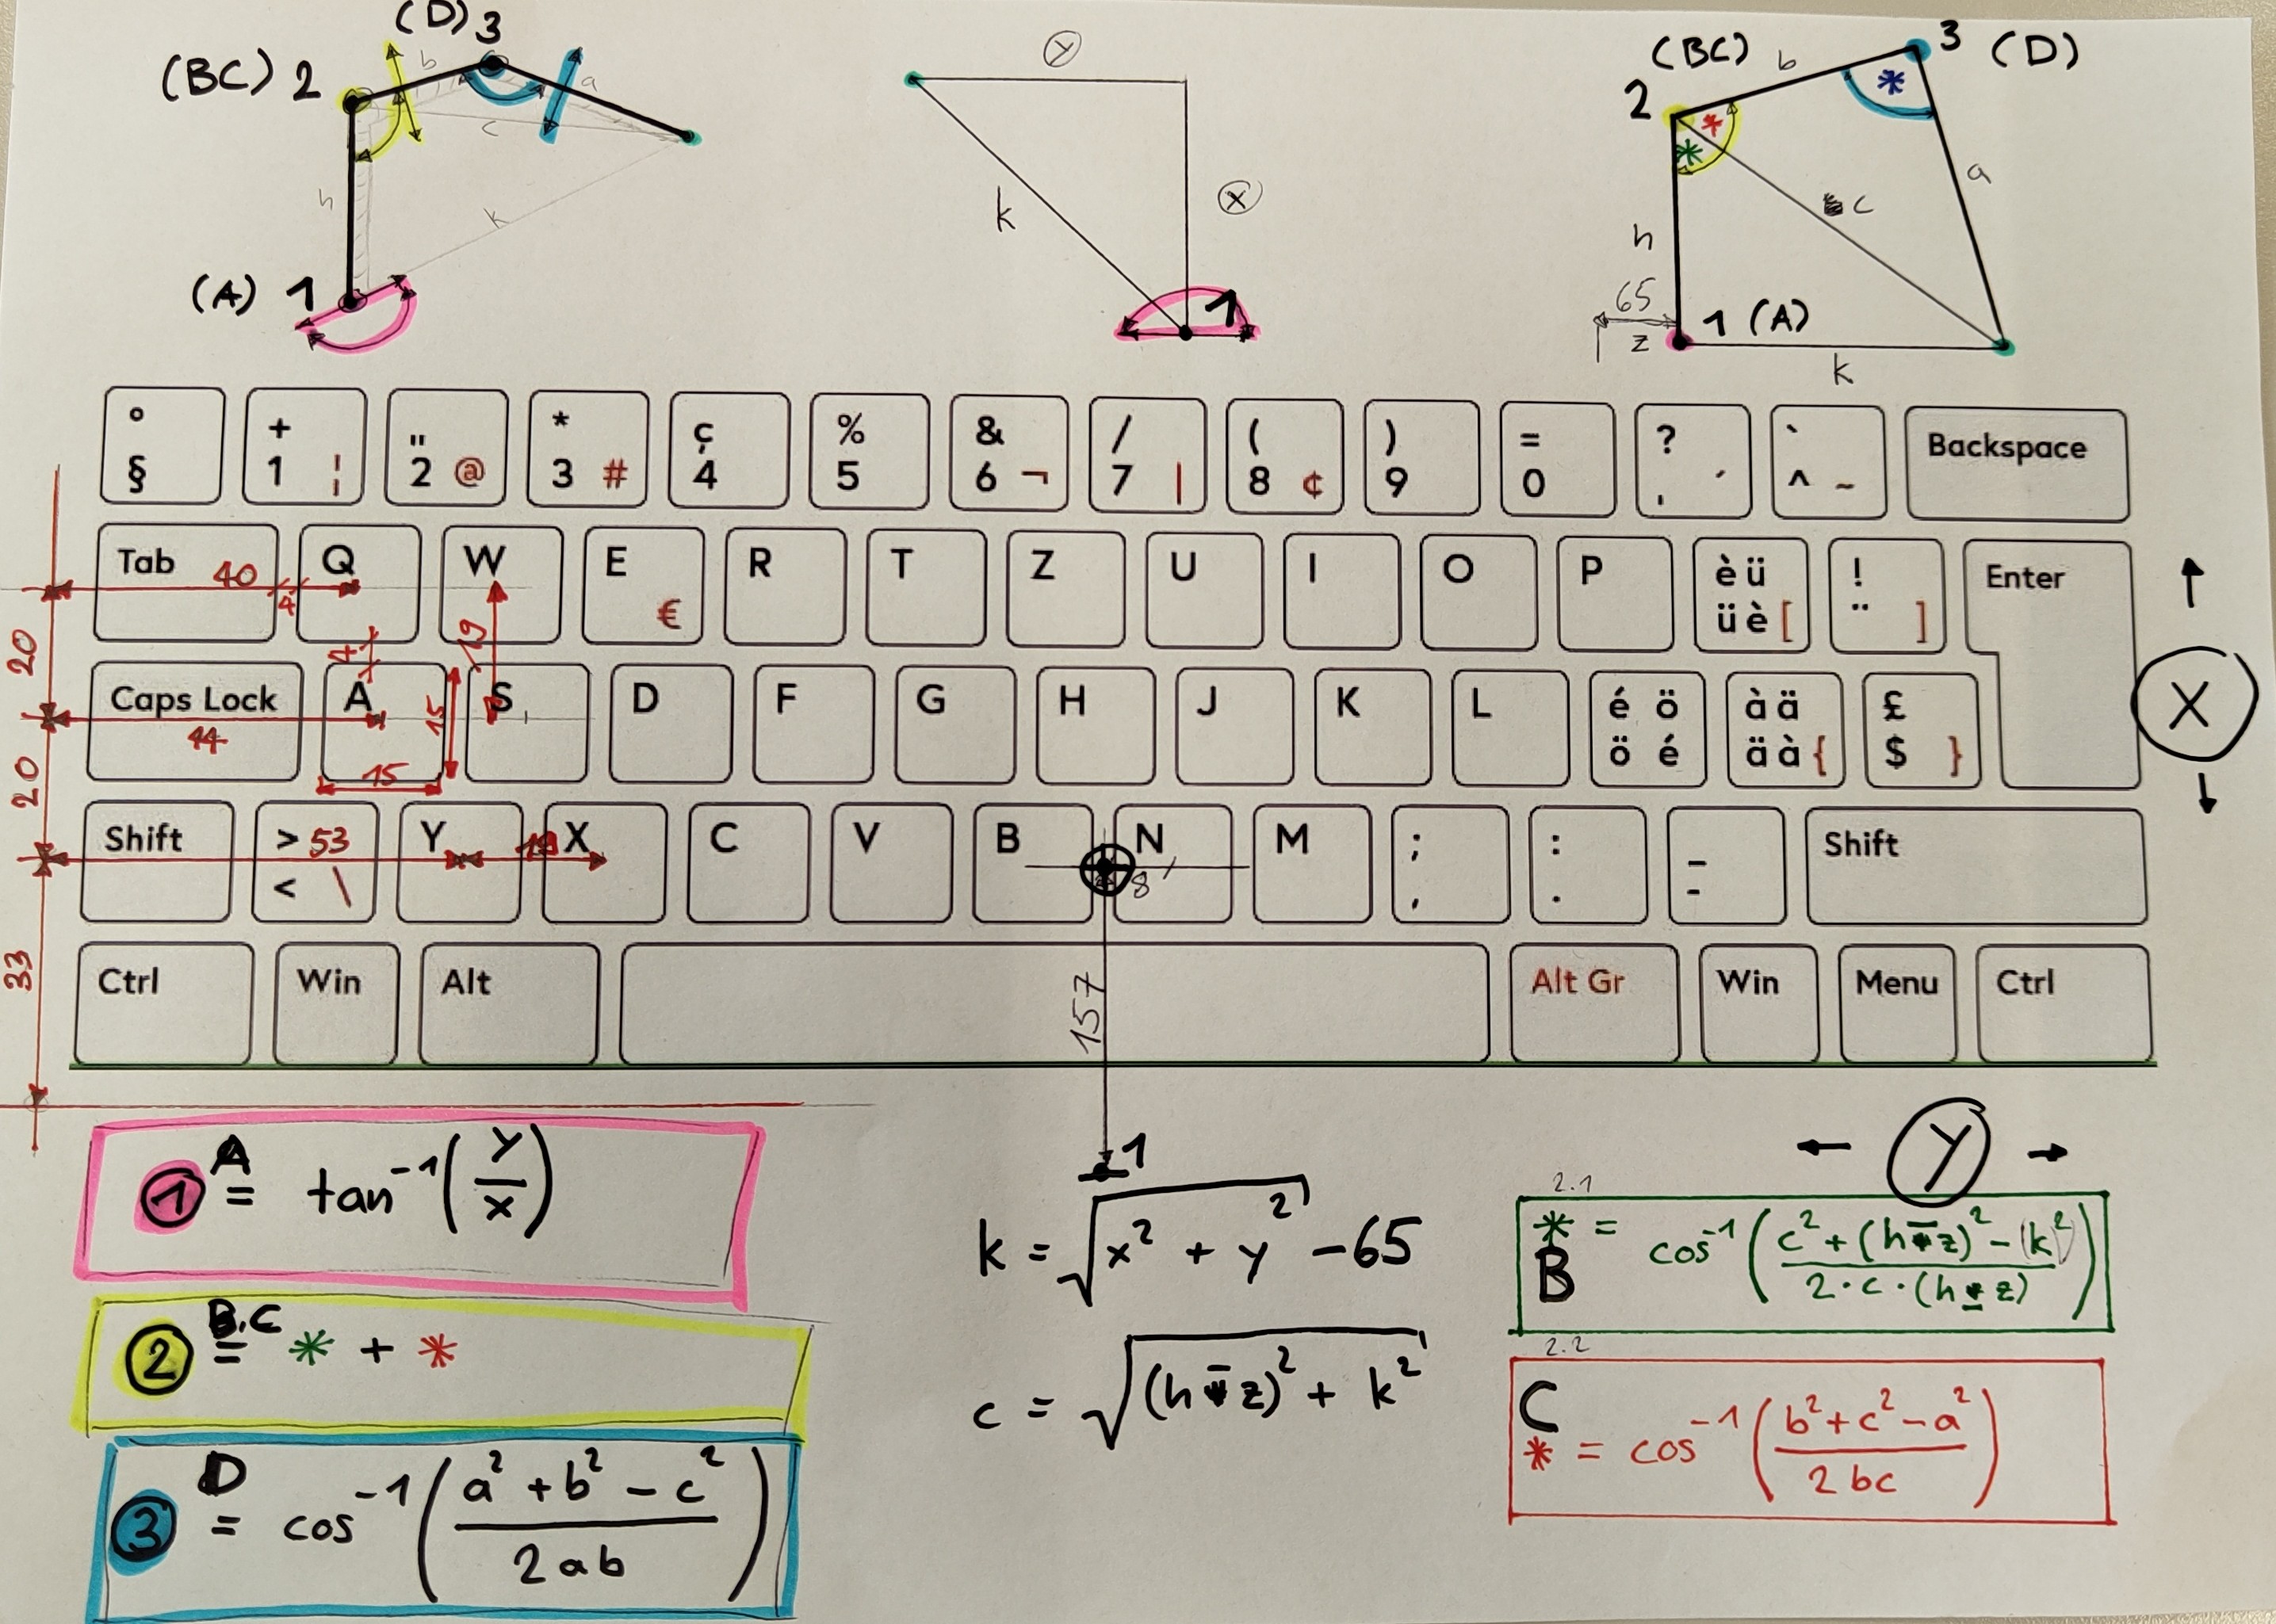 (D) 3
(BC) 2
b
a
c
h
k
(A) 1
y
x
k
1
(BC)
b
3 (D)
2
*
*
*
h
c
a
65
z
1 (A)
k
° §
+ 1 ¦
" 2 @
* 3 #
ç 4
% 5
& 6 ¬
/ 7 |
( 8 ¢
) 9
= 0
? ' ´
` ^ ~
Backspace
Tab 40
4
Q
W
E €
R
T
Z
U
I
O
P
è ü
ü è [
! ¨ ]
Enter
20
4
19
Caps Lock
44
A
15
15
S
D
F
G
H
J
K
L
é ö
ö é
à ä
ä à {
£ $ }
X
20
Shift
> 53
< \
Y
X
C
V
B
N
8
M
; ,
: .
_ -
Shift
33
Ctrl
Win
Alt
Alt Gr
Win
Menu
Ctrl
157
1
Y
1 A = tan⁻¹(y/x)
2 B.C = * + *
3 D = cos⁻¹((a² + b² - c²)/(2ab))
k = √(x² + y²) - 65
c = √((h - z)² + k²)
2.1
* B = cos⁻¹((c² + (h - z)² - (k)²)/(2·c·(h - z)))
2.2
C * = cos⁻¹((b² + c² - a²)/(2bc))